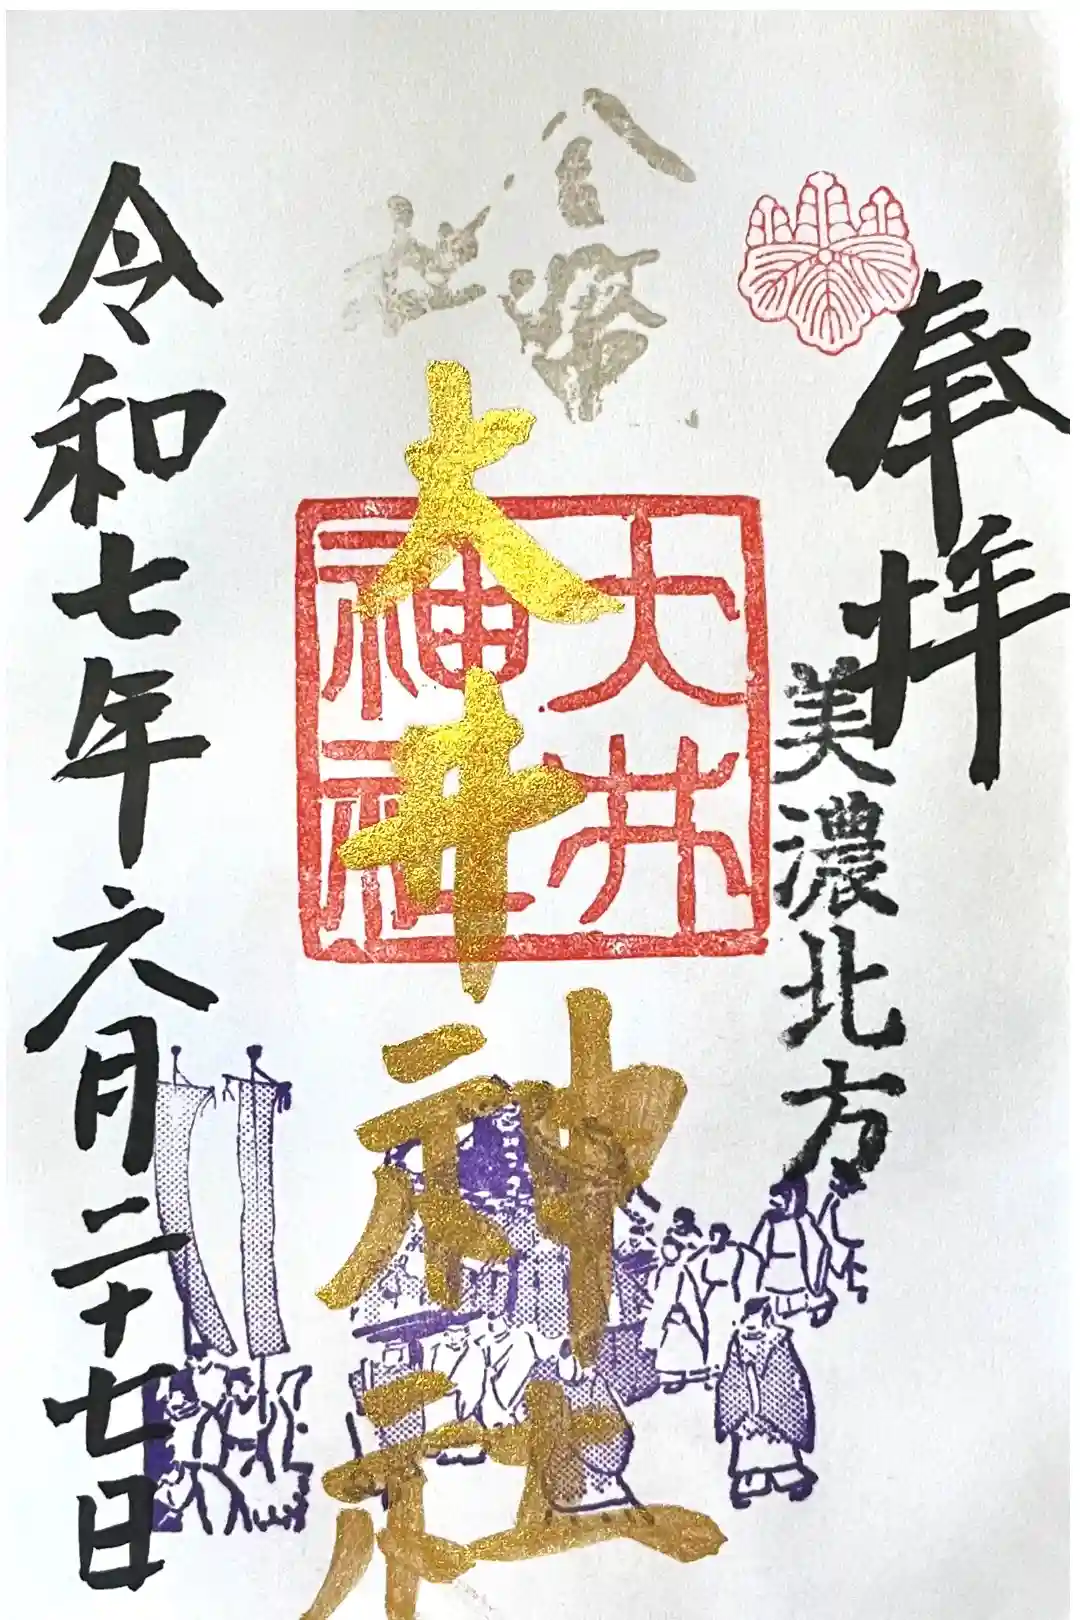 奉拝
美濃北方
大井
神社
大井神社
令和七年六月二十七日